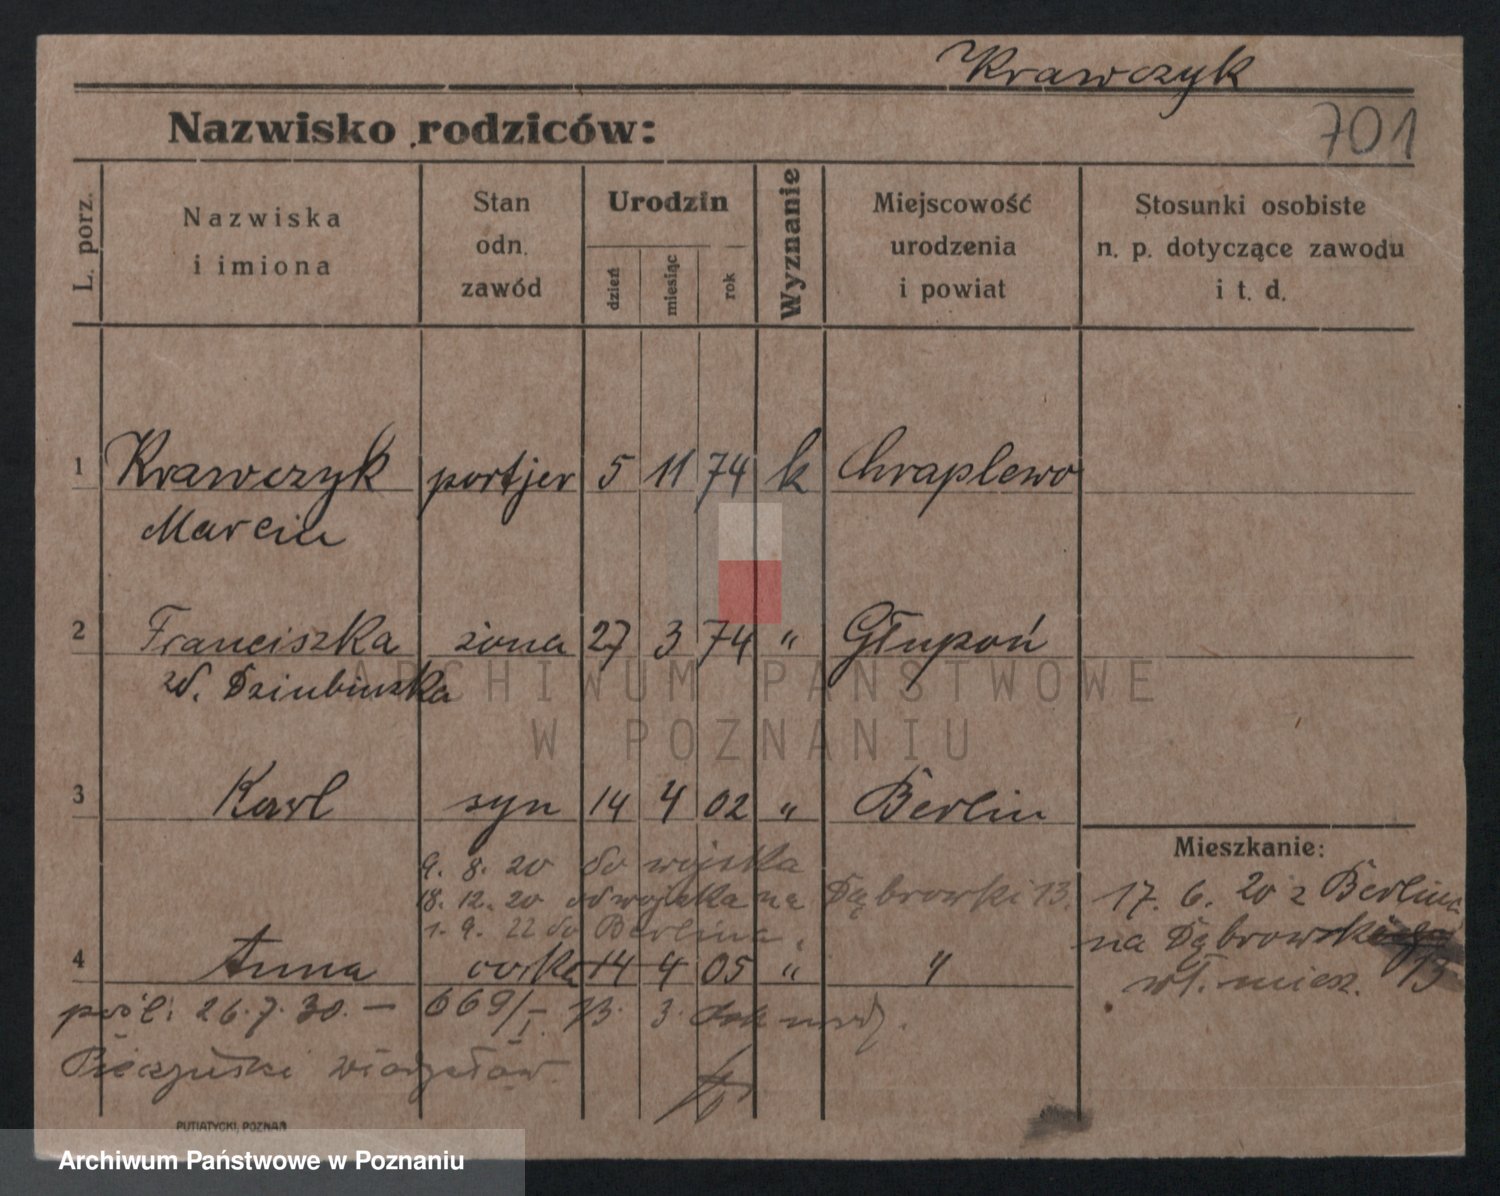 Krawczyk
701
Nazwisko rodziców:
L. porz.
Nazwiska
i imiona
Stan
odn.
zawód
Urodzin
dzień
miesiąc
rok
Wyznanie
Miejscowość
urodzenia
i powiat
Stosunki osobiste
n. p. dotyczące zawodu
i t. d.
1 Krawczyk portjer 5 11 74 k Chraplewo
Marcin
2 Franciszka żona 27 3 74 " Głupoń
zd. Dziubinska
ARCHIWUM PAŃSTWOWE
W POZNANIU
3 Karl syn 14 4 02 " Berlin
9. 8. 20 do wojska
18. 12. 20 od wojska na Dąbrowski 13.
1. 9. 22 do Berlina.
4 Anna córka 14 4 05 " "
Mieszkanie:
17. 6. 20 z Berlina
na Dąbrowskiego
wł. miesz. 13
26.7.30. — 669/I. 73. 3.
Władysław
PUTIATYCKI, POZNAŃ
Archiwum Państwowe w Poznaniu